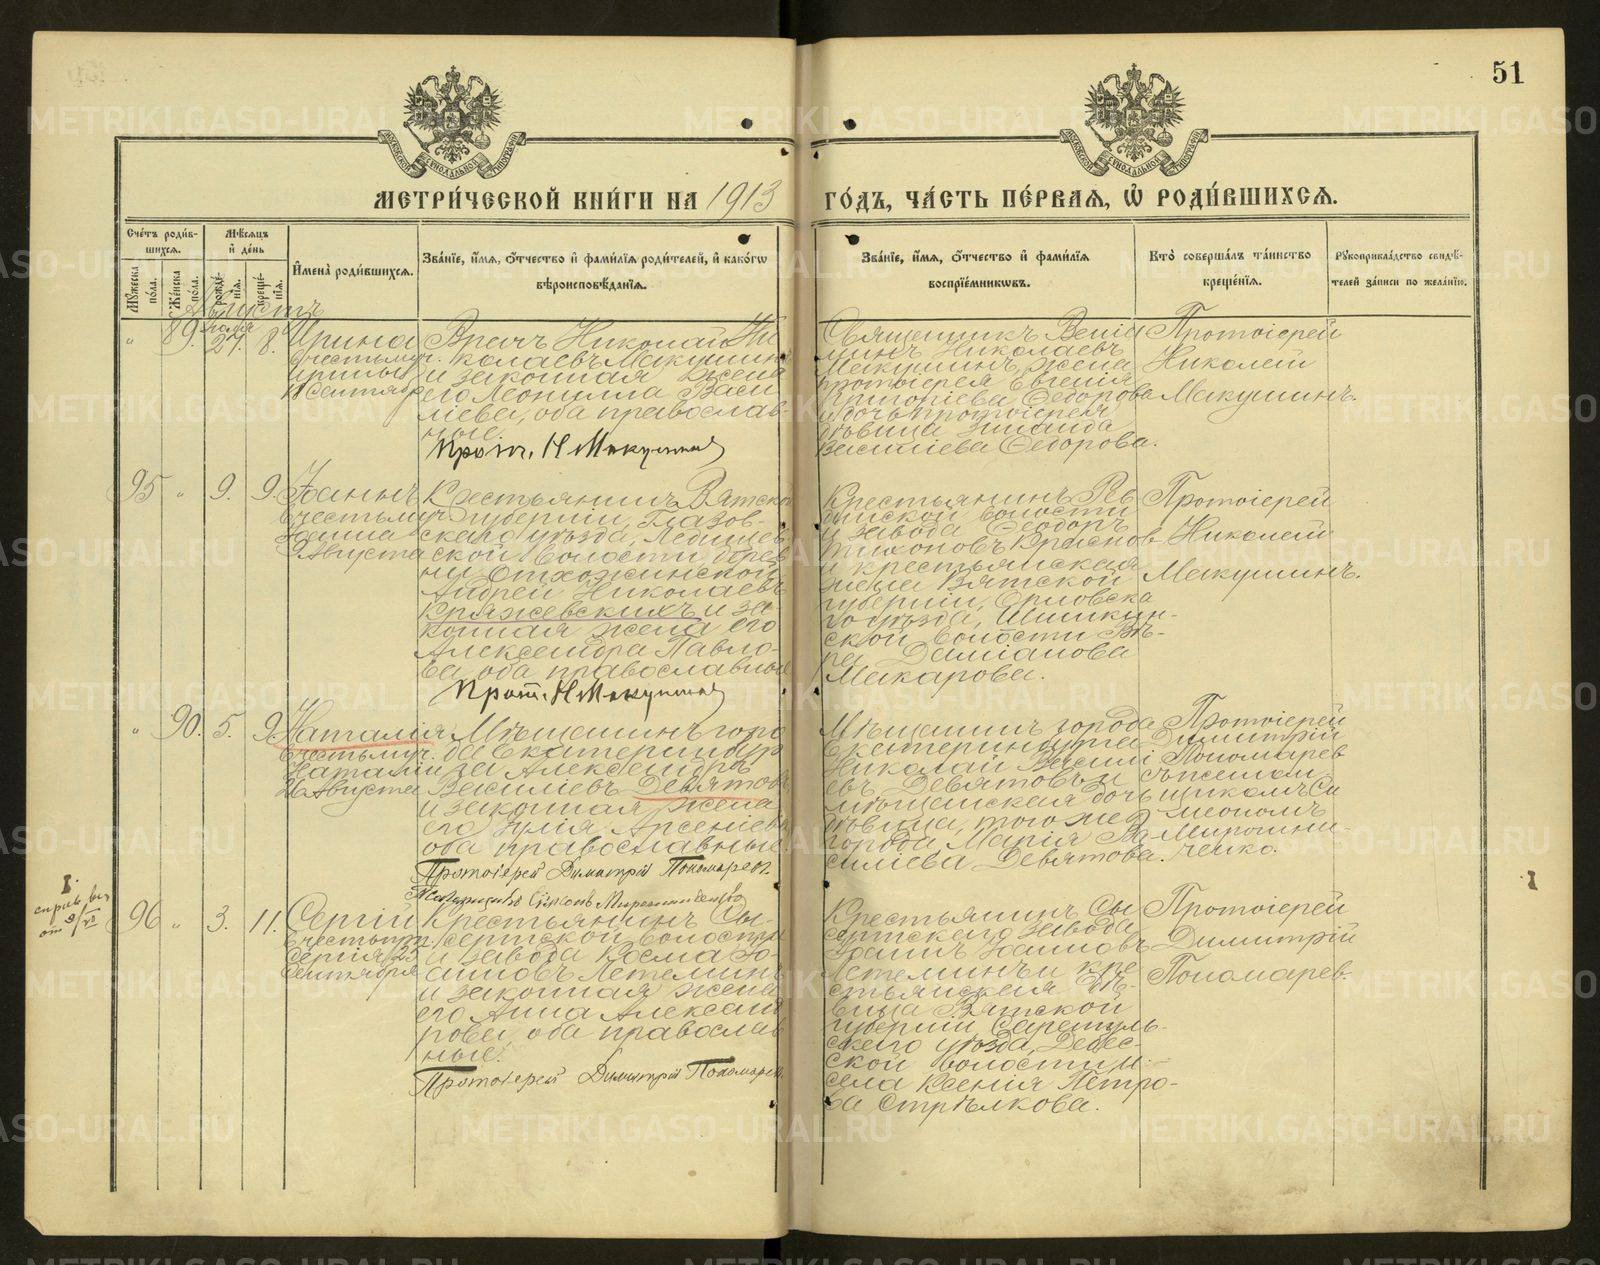 51
МЕТРИ́ЧЕСКОЙ КНИ́ГИ НА 1913
ГО́ДЪ, ЧА́СТЬ ПЕ́РВАЯ, Ѽ РОДИ́ВШИХСЯ.
Сче́тъ роди́в-
шихся.
Мꙋ́жеска по́ла.
Же́нска по́ла.
Мѣ́сяцъ
и҆ де́нь
рожде́-
нїя.
креще́-
нїя.
И҆мена̀ роди́вшихся.
Зва́нїе, и҆́мя, ѻ҆́тчество и҆ фами́лїя роди́телей, и҆ како́гѡ
вѣроисповѣ́данїя.
Зва́нїе, и҆́мя, ѻ҆́тчество и҆ фами́лїя
воспрїе́мникѡвъ.
Кто̀ соверша́лъ та́инство
креще́нїя.
Рꙋкоприкла́дство свидѣ́-
телей за́писи по жела́нїю.
Августъ
"
89.
Іюля
27.
8.
Ирина
въ честь муч.
Ирины
Сентяб.
Врачъ Николай Ни
колаевъ Макушинъ
и законная жена
его Леонилла Васи
ліева, оба православ-
ные.
Прот. Н Макушинъ
Священникъ Веніа
минъ Николаевъ
Макушинъ, жена
протоіерея Евгенія
Григоріева Ѳедорова
и дочь протоіерея
дѣвица Зинаида
Василіева Ѳедорова.
Протоіерей
Николай
Макушинъ.
95
"
9.
9.
Іоаннъ
въ честь муч.
Іоанна
9 Августа
Крестьянинъ Вятской
губерніи, Глазов-
скаго уѣзда,
ской волости дерев
ни
Андрей Николаевъ
Кряжевскихъ и за
конная жена его
Александра Павло-
ва, оба православные
Прот. Н Макушинъ
Крестьянинъ Ре
волости
и завода Ѳеодоръ
Тихоновъ Красновъ
и крестьянская
жена Вятской
губерніи, Орловска
го уѣзда, Шишкин-
ской волости Вѣ-
ра Даміанова
Макарова.
Протоіерей
Николай
Макушинъ.
"
90.
5.
9.
Наталія
въ честь муч.
Наталіи
26 Августа
Мѣщанинъ горо
да Екатеринбур
га Александръ
Василіевъ Девятовъ
и законная жена
его Юлія Арсеніева
оба православные
Протоіерей Димитрій Пономарев.
Псаломщикъ Симеонъ Мирошниченко
Мѣщанинъ города
Екатеринбурга
Николай Василі
евъ Девятовъ и
мѣщанская дочь
дѣвица, того же
города Марія Ва
силіева Девятова.
Протоіерей
Димитрій
Пономарев
съ псалом
щикомъ Си
меономъ
Мирошни-
ченко.
I.
справ. вы.
от
96
"
3.
11.
Сергій
въ честь пр.
Сергія 25
Сентября
Крестьянинъ Сы-
сертской волости
и завода Косма Іо-
анновъ Летеминъ
и законная жена
его Анна Александ
рова, оба православ
ные.
Протоіерей Димитрій Пономарев.
Крестьянинъ Сы
сертскаго завода
Іоаннъ Іоанновъ
Летеминъ и кре
стьянская дѣ-
вица Вятской
губерніи Сарапуль-
скаго уѣзда, Дебес-
ской волости и
села Ксенія Петро-
ва Стрѣлкова.
Протоіерей
Димитрій
Пономарев.
I
METRIKI.GASO-URAL.RU